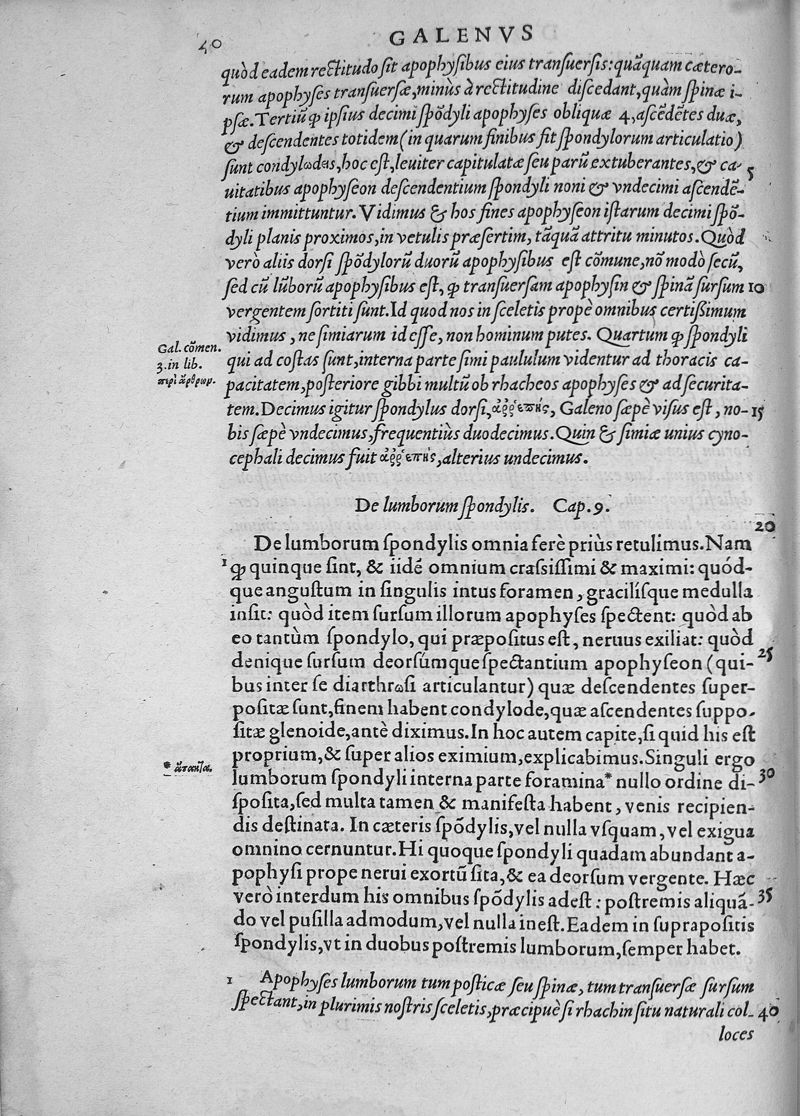 40
GALENVS
quòd eadem rectitudo sit apophysibus eius transuersis: quãquam cætero-
rum apophyses transuersæ, minùs à rectitudine discedant, quàm spinæ i-
psæ. Tertiũ ꝙ ipsius decimi spõdyli apophyses obliquæ 4, ascẽdẽtes duæ,
& descendentes totidem (in quarum finibus fit spondylorum articulatio)
sunt condylωdεs, hoc est, leuiter capitulatæ seu parũ extuberantes, & ca- 5
uitatibus apophyseon descendentium spondyli noni & vndecimi ascendẽ-
tium immittuntur. Vidimus & hos fines apophyseon istarum decimi spõ-
dyli planis proximos, in vetulis præsertim, tãquã attritu minutos. Quòd
verò aliis dorsi spõdylorũ duorũ apophysibus est cõmune, nõ modò secũ,
sed cũ lũborũ apophysibus est, ꝙ transuersam apophysin & spinã sursum 10
vergentem sortiti sunt. Id quod nos in sceletis propè omnibus certißimum
vidimus, ne simiarum id esse, non hominum putes. Quartum ꝙ spondyli
Gal. cõmen.
3. in lib.
περὶ ἄρθρωρ.
qui ad costas sunt, interna parte simi paululum videntur ad thoracis ca-
pacitatem, posteriore gibbi multũ ob rhacheos apophyses & ad securita-
tem. Decimus igitur spondylus dorsi, ἀῤῥεπὴς, Galeno sæpè visus est, no- 15
bis sæpè vndecimus, frequentiùs duodecimus. Quin & simiæ unius cyno-
cephali decimus fuit ἀῤῥεπὴς, alterius undecimus.
De lumborum spondylis. Cap. 9.
20
De lumborum spondylis omnia ferè priùs retulimus. Nam
1 ꝙ quinque sint, & iidẽ omnium crassissimi & maximi: quód-
que angustum in singulis intus foramen, gracilísque medulla
insit: quòd item sursum illorum apophyses spectent: quòd ab
eo tantùm spondylo, qui præpositus est, neruus exiliat: quòd
denique sursum deorsúmque spectantium apophyseon (qui- 25
bus inter se diarthrωsi articulantur) quæ descendentes super-
positæ sunt, finem habent condylode, quæ ascendentes suppo-
sitæ glenoide, antè diximus. In hoc autem capite, si quid his est
proprium, & super alios eximium, explicabimus. Singuli ergo
* ἄτακτα.
lumborum spondyli interna parte foramina* nullo ordine di- 30
sposita, sed multa tamen & manifesta habent, venis recipien-
dis destinata. In cæteris spõdylis, vel nulla vsquam, vel exigua
omnino cernuntur. Hi quoque spondyli quadam abundant a-
pophysi prope nerui exortũ sita, & ea deorsum vergente. Hæc
verò interdum his omnibus spõdylis adest: postremis aliquã- 35
do vel pusilla admodum, vel nulla inest. Eadem in suprapositis
spondylis, vt in duobus postremis lumborum, semper habet.
1 Apophyses lumborum tum posticæ seu spinæ, tum transuersæ sursum
spectant, in plurimis nostris sceletis, præcipuè si rhachin situ naturali col- 40
loces